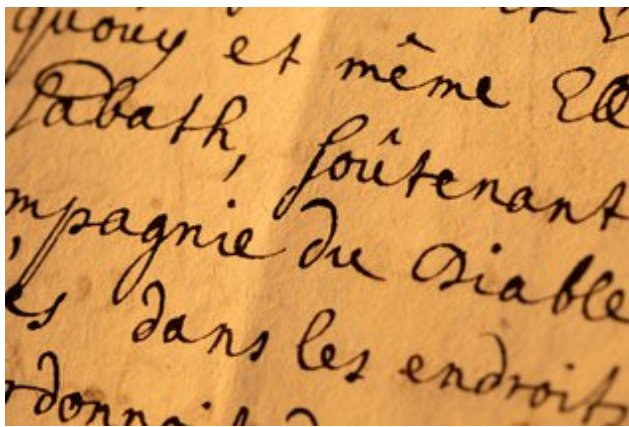 quouy et même Elle
Sabath, soûtenant
mpagnie du Diable
es dans les endroits
rdonnait d